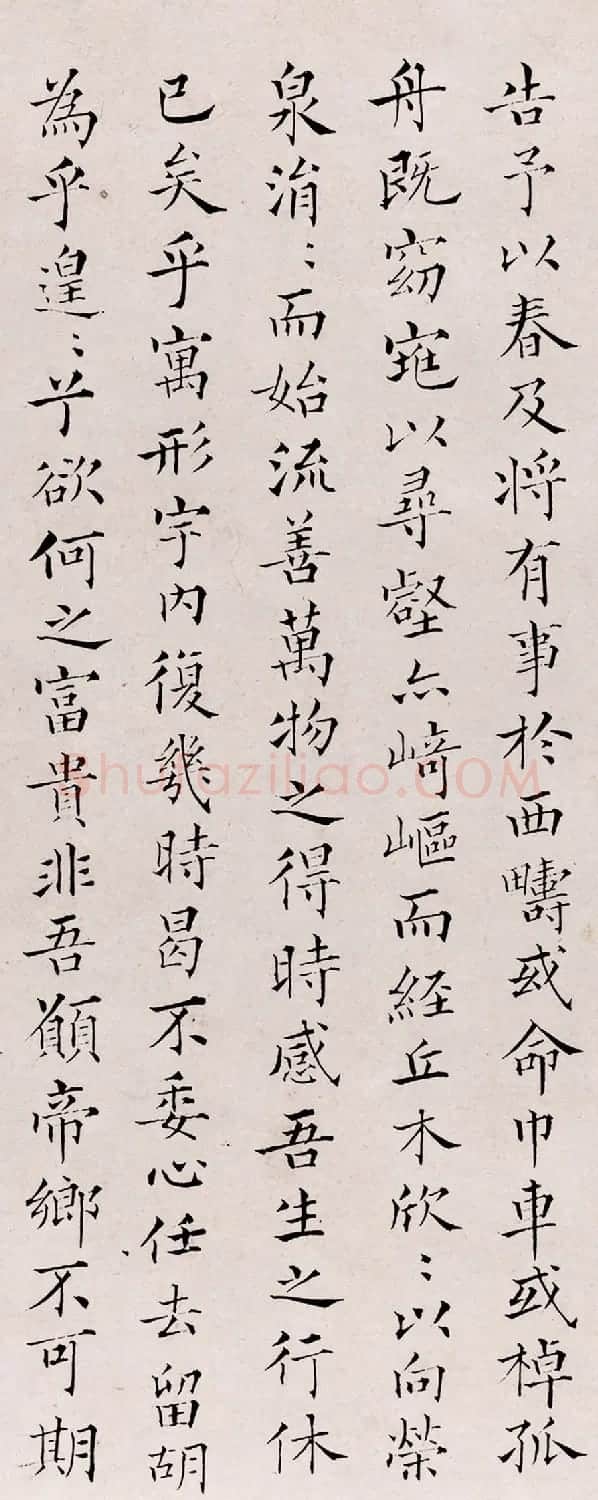 告予以春及将有事於西疇或命巾車或棹孤
舟既窈窕以尋壑亦崎嶇而経丘木欣〻以向榮
泉涓〻而始流善萬物之得時感吾生之行休
已矣乎寓形宇内復幾時曷不委心任去留胡
為乎遑〻兮欲何之富貴非吾願帝鄉不可期
shufaziliao.COM